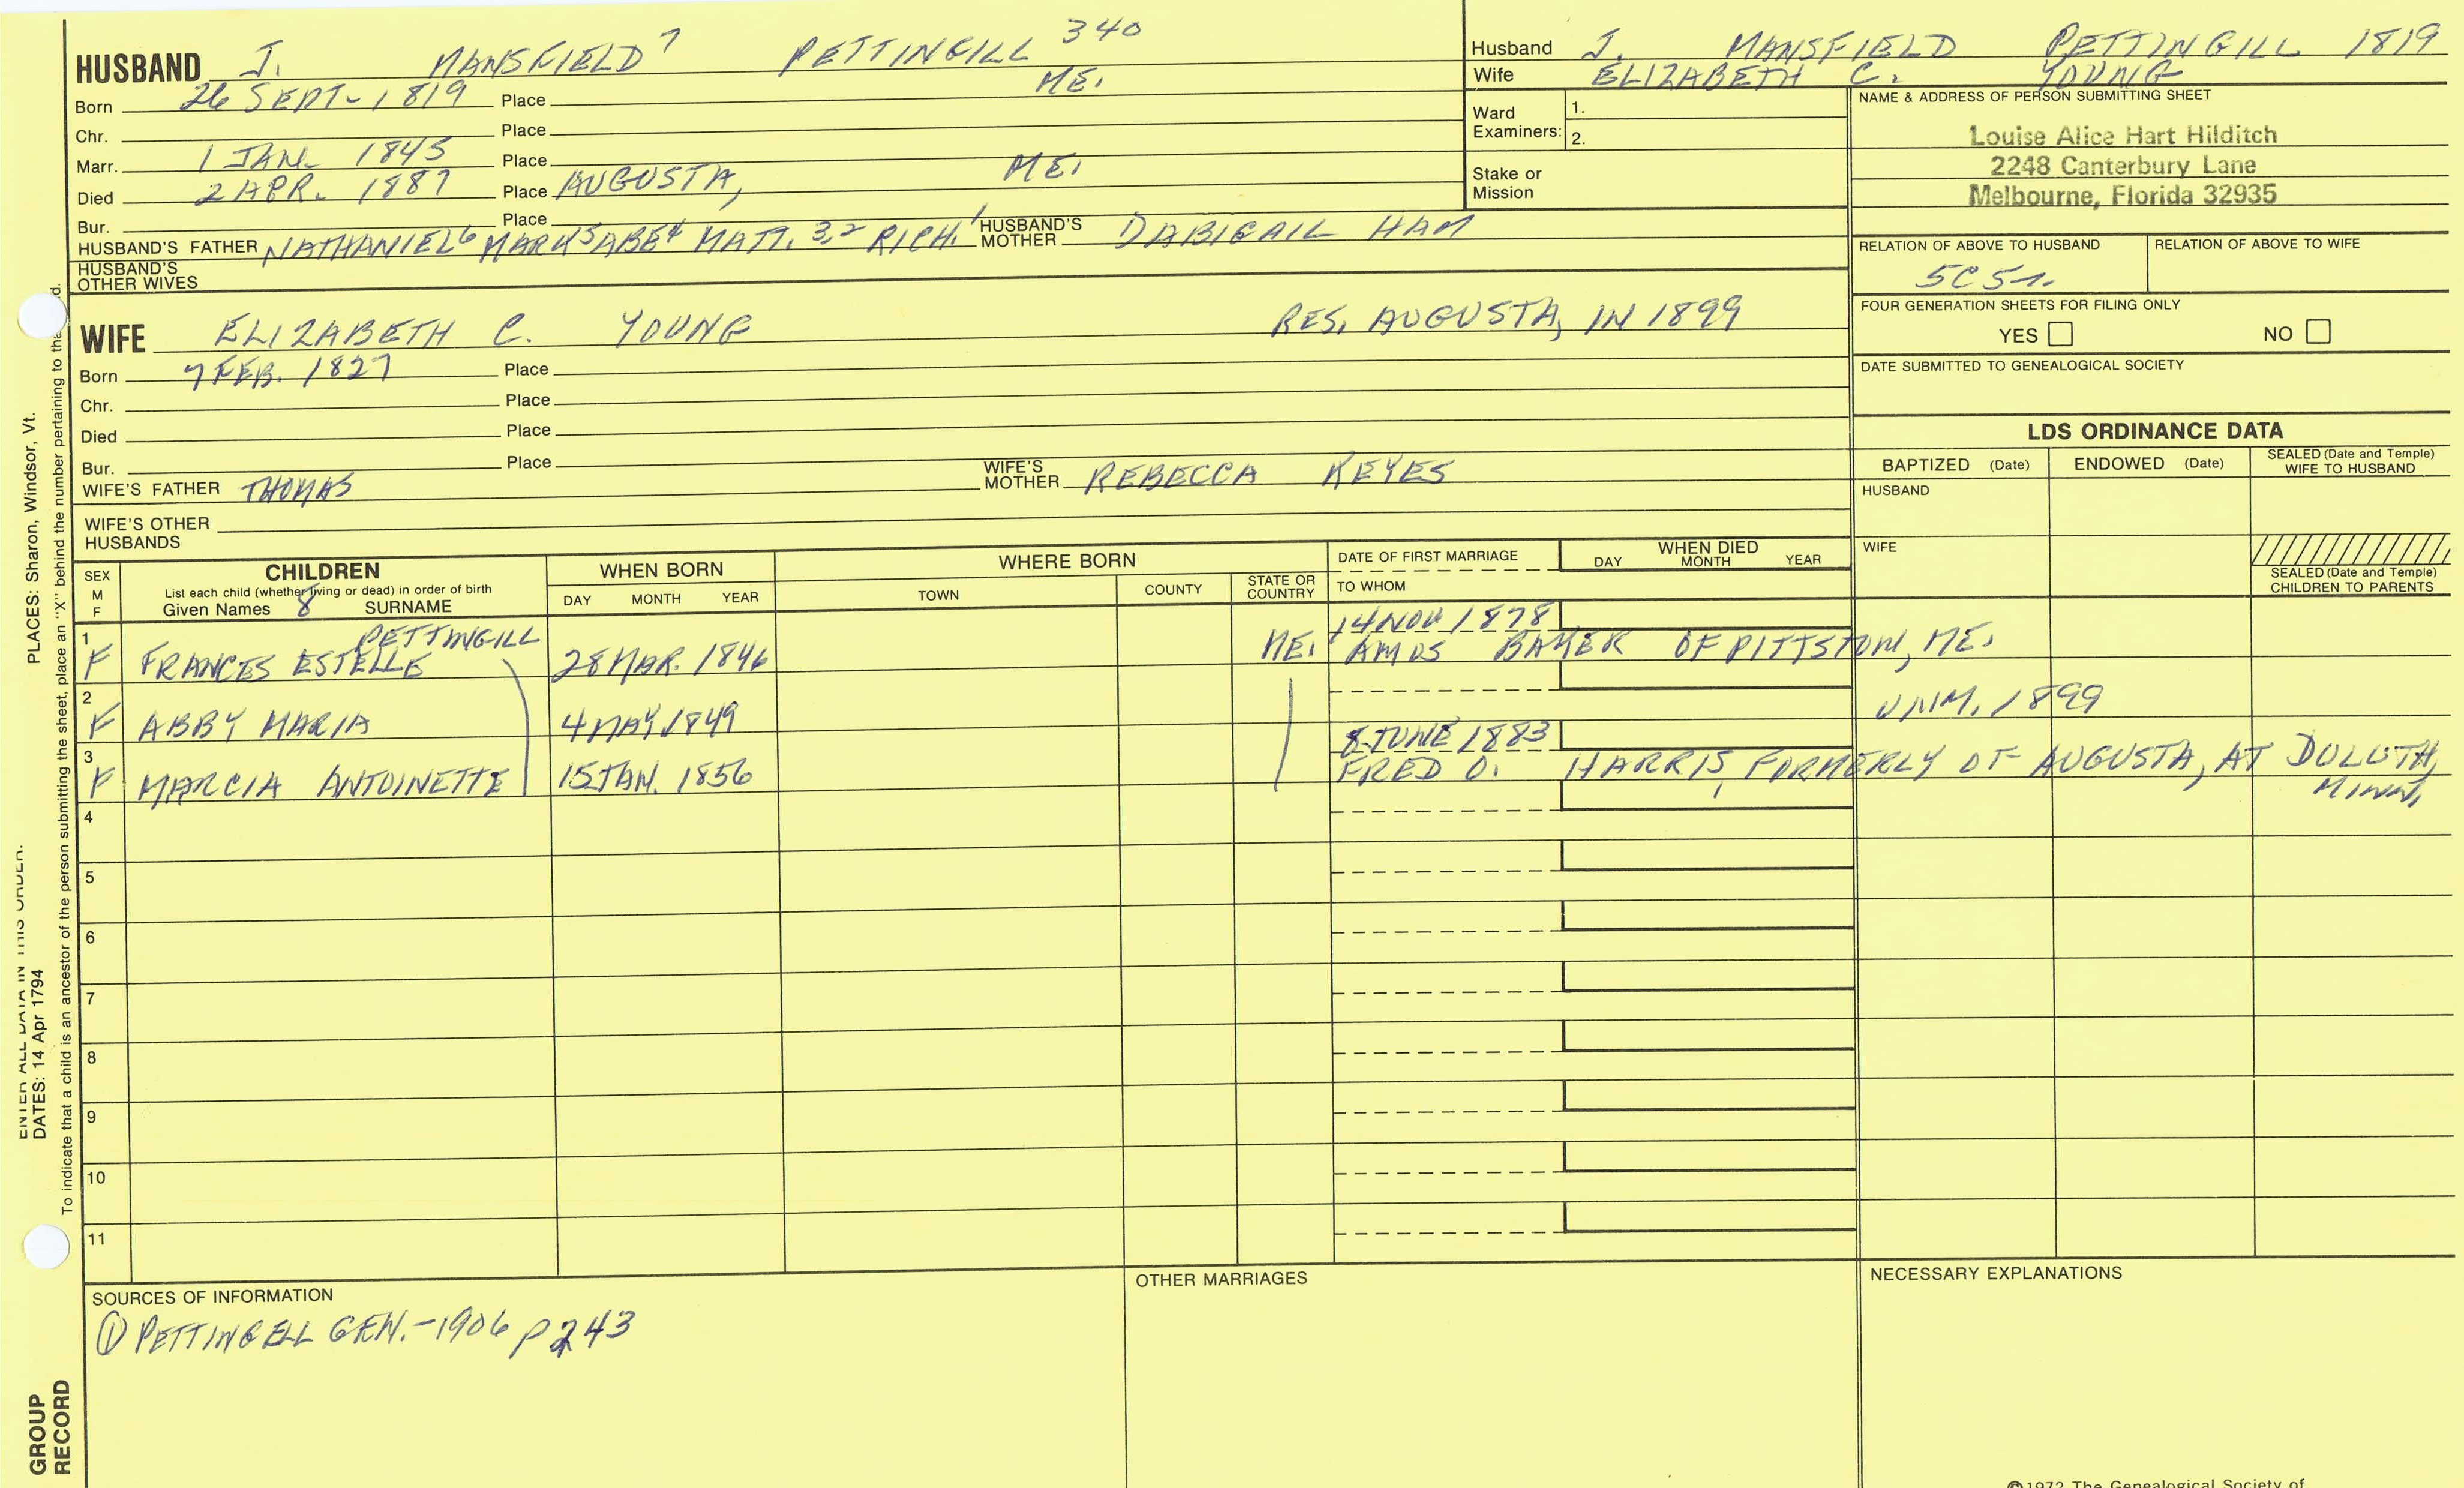 HUSBAND J. MANSFIELD 7 PETTINGILL 340
Born 26 SEPT. 1819 Place ME.
Chr. Place
Marr. 1 JAN. 1845 Place
Died 2 APR. 1887 Place AUGUSTA, ME.
Bur. Place
HUSBAND'S FATHER NATHANIEL6 MARK5 ABE4 MATT.3,2 RICH.1 HUSBAND'S MOTHER DABIGAIL HAM
HUSBAND'S OTHER WIVES
Husband J. MANSFIELD PETTINGILL 1819
Wife ELIZABETH C. YOUNG
Ward Examiners: 1.
2.
Stake or Mission
NAME & ADDRESS OF PERSON SUBMITTING SHEET
Louise Alice Hart Hilditch
2248 Canterbury Lane
Melbourne, Florida 32935
RELATION OF ABOVE TO HUSBAND RELATION OF ABOVE TO WIFE
5C5r.
FOUR GENERATION SHEETS FOR FILING ONLY
YES NO
DATE SUBMITTED TO GENEALOGICAL SOCIETY
WIFE ELIZABETH C. YOUNG RES. AUGUSTA, IN 1899
Born 7 FEB. 1827 Place
Chr. Place
Died Place
Bur. Place
WIFE'S FATHER THOMAS WIFE'S MOTHER REBECCA KEYES
WIFE'S OTHER HUSBANDS
LDS ORDINANCE DATA
BAPTIZED (Date) ENDOWED (Date) SEALED (Date and Temple) WIFE TO HUSBAND
HUSBAND
WIFE
SEALED (Date and Temple) CHILDREN TO PARENTS
SEX M F
CHILDREN
List each child (whether living or dead) in order of birth
Given Names 8 SURNAME
WHEN BORN
DAY MONTH YEAR
WHERE BORN
TOWN COUNTY STATE OR COUNTRY
DATE OF FIRST MARRIAGE
TO WHOM
WHEN DIED
DAY MONTH YEAR
PETTINGILL 14 NOV 1878
1 F FRANCES ESTELLE 28 MAR. 1846 ME. AMOS BAKER OF PITTSTON, ME.
2 F ABBY MARIA 4 MAY 1849 UNM. 1899
8 JUNE 1883
3 F MARCIA ANTOINETTE 15 JAN. 1856 FRED O. HARRIS, FORMERLY OF AUGUSTA, AT DULUTH, MINN,
4
5
6
7
8
9
10
11
SOURCES OF INFORMATION
① PETTINGELL GEN.-1906 p243
OTHER MARRIAGES
NECESSARY EXPLANATIONS
©1972 The Genealogical Society of
PLACES: Sharon, Windsor, Vt.
ENTER ALL DATA IN THIS ORDER.
DATES: 14 Apr 1794
To indicate that a child is an ancestor of the person submitting the sheet, place an "X" behind the number pertaining to
GROUP RECORD